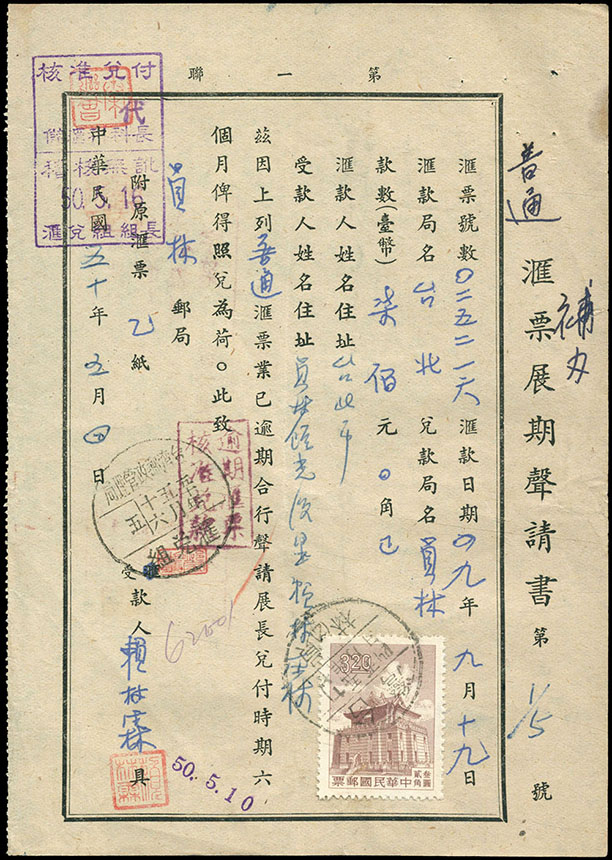 第一聯
普通
補力
匯票展期聲請書 第 1/5 號
匯票號數〇二五二一六 匯款日期四九年九月十九日
匯款局名台北 兌款局名員林
款數(臺幣)柒佰元〇角
匯款人姓名住址台北市
受款人姓名住址員林
茲因上列普通匯票業已逾期合行聲請展長兌付時期六
個月俾得照兌為荷。此致
員林郵局
附原匯票乙紙
受款人 賴林 具
中華民國五十年五月四日
核准兌付
代
稽核無訛
50. 5. 16
匯兌組組長
逾期匯票
核准兌款
匯兌組
50. 5. 10
3.20
叁圓貳角
中華民國郵票